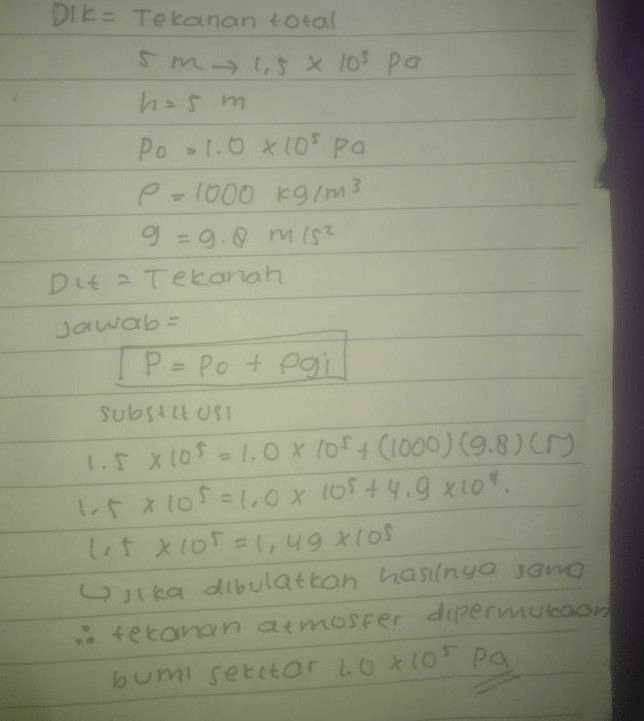 Dik = Tekanan total
5 m → 1,5 × 10⁵ Pa
h = 5 m
Po = 1.0 × 10⁵ Pa
ρ = 1000 kg/m³
g = 9.8 m/s²
Dit = Tekanan
Jawab =
P = Po + ρgi
Substitusi
1.5 × 10⁵ = 1.0 × 10⁵ + (1000) (9.8) (5)
1,5 × 10⁵ = 1,0 × 10⁵ + 4.9 × 10⁴.
1,5 × 10⁵ = 1,49 × 10⁵
↳ Jika dibulatkan hasilnya sama
∴ tekanan atmosfer dipermukaan
bumi sekitar 1.0 × 10⁵ Pa